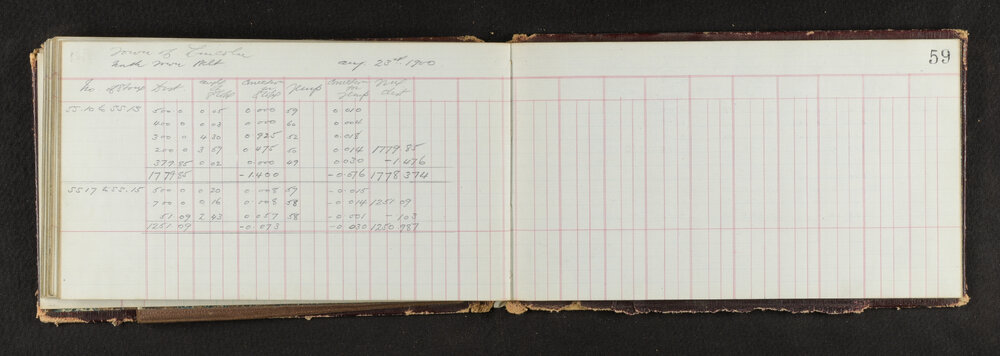 59
Town of Lincoln
Aug 23rd 1900
No of Stone Dist. Diff Correction for Temp Correction for Temp
55.10 to 55.13 500 0 0 05 0 000 59 0.010
400 0 0 03 0 000 60 0.004
300 0 4 30 0 925 52 0.018
200 0 3 57 0 475 50 0.014 1779 85
379.85 0 02 0.000 49 0.030 -1.476
1779 85 -1.400 -0.076 1778 374
55.17 to 55.15 500 0 0 20 0.008 57 -0.015
700 0 0 16 0.008 58 -0.014 1251 09
51 09 2 43 0 057 58 -0 001 -103
1251.09 -0.073 -0 030 1250.987